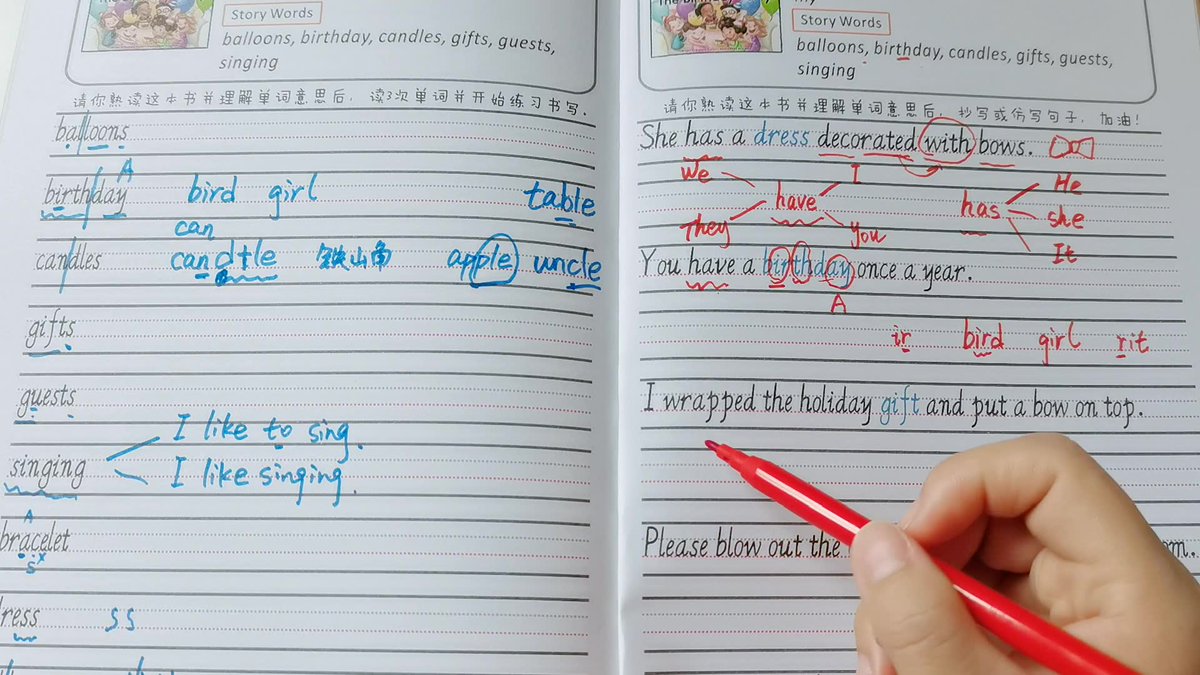 Story Words
balloons, birthday, candles, gifts, guests,
singing
请你熟读这本书并理解单词意思后, 读3次单词并开始练习书写.
balloons
A
birthday bird girl table
can
candles candtle 铁山角 apple uncle
gifts
guests
I like to sing.
singing
I like singing.
A
bracelet
s x
ress ss
Story Words
balloons, birthday, candles, gifts, guests,
singing
请你熟读这本书并理解单词意思后, 抄写或仿写句子, 加油!
She has a dress decorated with bows.
We have I has He
They you she
It
You have a birthday once a year.
A
ir bird girl rit
I wrapped the holiday gift and put a bow on top.
Please blow out the